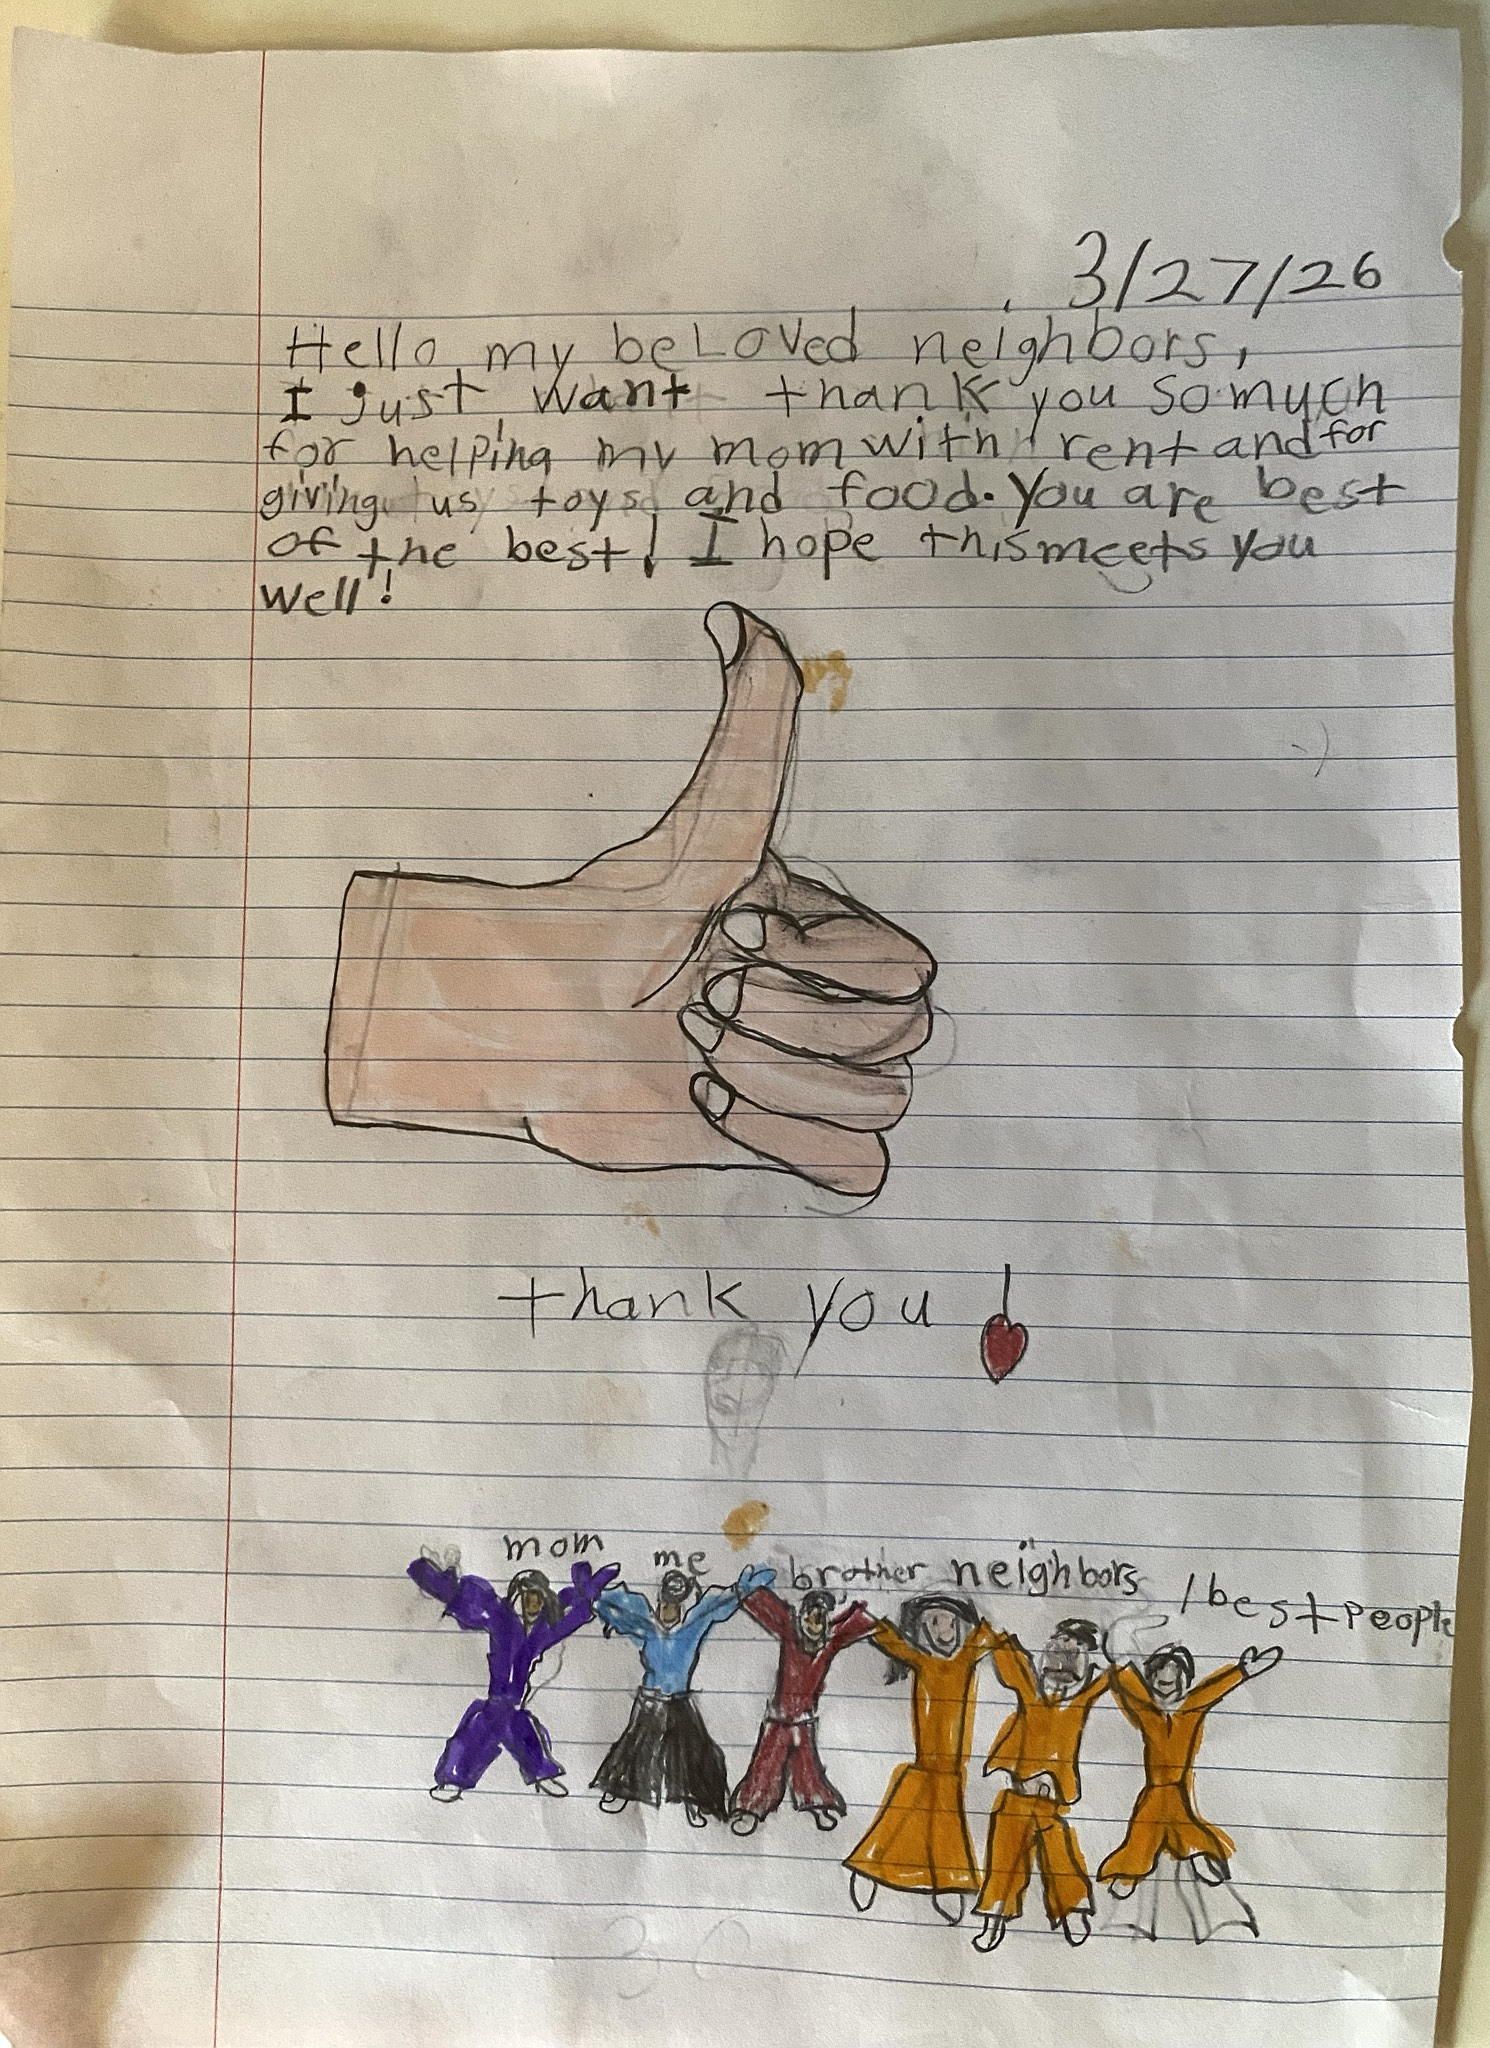 3/27/26
Hello my beLoved neighbors,
I just want thank you so much
for helping my mom with rent and for
giving us toys and food. You are best
of the best! I hope this meets you
well!
thank you!
mom me brother neighbors / best people